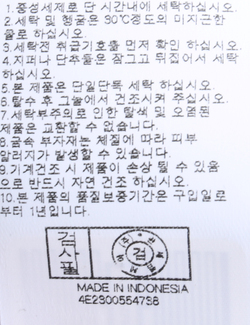 1.중성세제로 단 시간내에 세탁하십시오.
2.세탁 및 헹굼은 30℃정도의 미지근한
물로 하십시오.
3.세탁전 취급기호를 먼저 확인 하십시오.
4.지퍼나 단추등은 잠그고 뒤집어서 세탁
하십시오.
5.본 제품은 단일단독 세탁 하십시오.
6.탈수 후 그늘에서 건조시켜 주십시오.
7.세탁부주의로 인한 탈색 및 오염된
제품은 교환할 수 없습니다.
8.금속 부자재는 체질에 따라 피부
알러지가 발생할 수 있습니다.
9.기계건조 시 제품이 손상 될 수 있음
으로 반드시 자연 건조 하십시오.
10.본 제품의 품질보증기간은 구입일로
부터 1년입니다.
검사필
검
MADE IN INDONESIA
4E2300554738